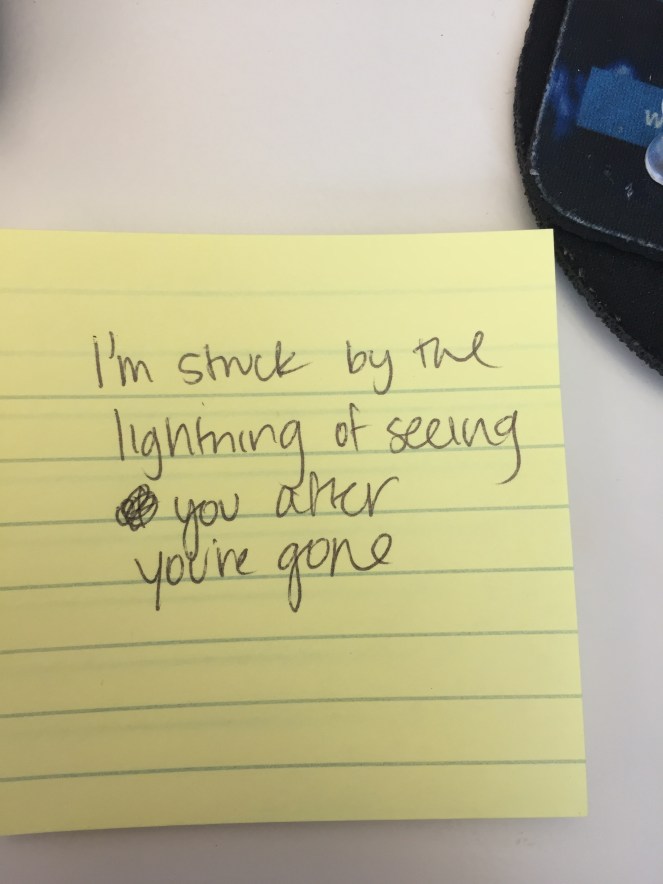 I'm struck by the
lightning of seeing
you after
you're gone